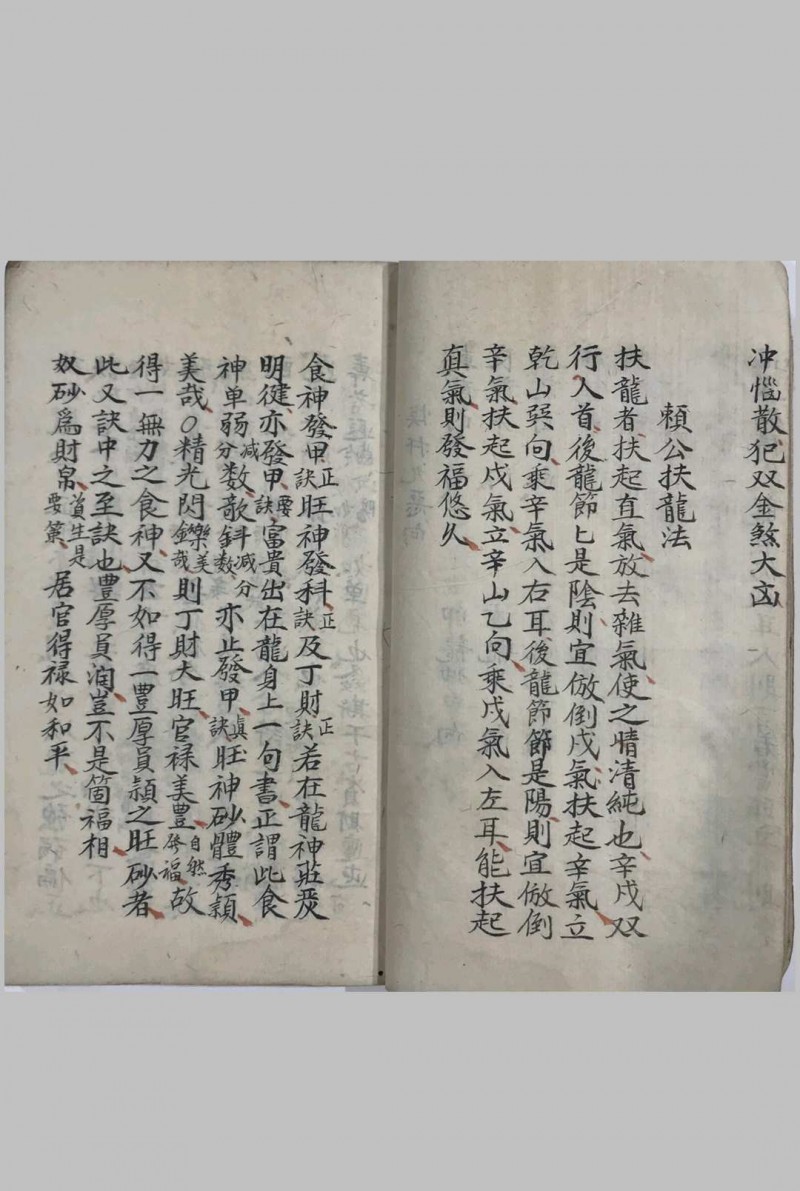 冲惱散犯双金煞大凶
賴公扶龍法
扶龍者扶起直氣放去雜氣使之晴清純也辛戌双
行入首後龍節匕是陰則宜倣倒戌氣扶起辛氣立
乾山巽向乘辛氣入右耳後龍節節是陽則宜倣倒
辛氣扶起戌氣立辛山乙向乘戌氣入左耳能扶起
真氣則發福悠久
食神發甲正訣旺神發科正訣及丁財正訣若在龍神
明健亦發甲要訣富貴出在龍身上一句書正謂此食
神单弱減分数欹斜減分数亦止發甲真訣旺神砂體秀穎
美哉〇精光閃鑠美哉則丁財大旺官禄美豊自然發福故
得一無力之食神又不如得一豊厚員穎之旺砂者
此又訣中之至訣也豊厚員潤豈不是箇福相
奴砂爲財帛資生是要策居官得禄如和平